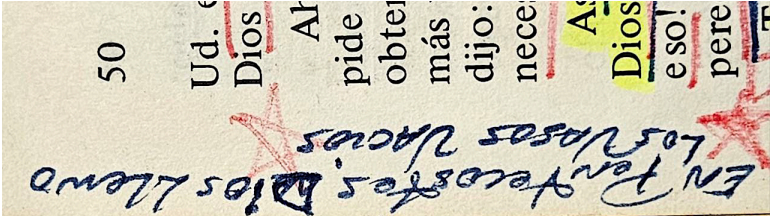 50
Ud. e
Dios
Ah
pide
obte
más
dijo:
neces
As
Dios
eso!
pere
T
EN Pentecostes, Dios LLeNo
Los Vasos Vacios